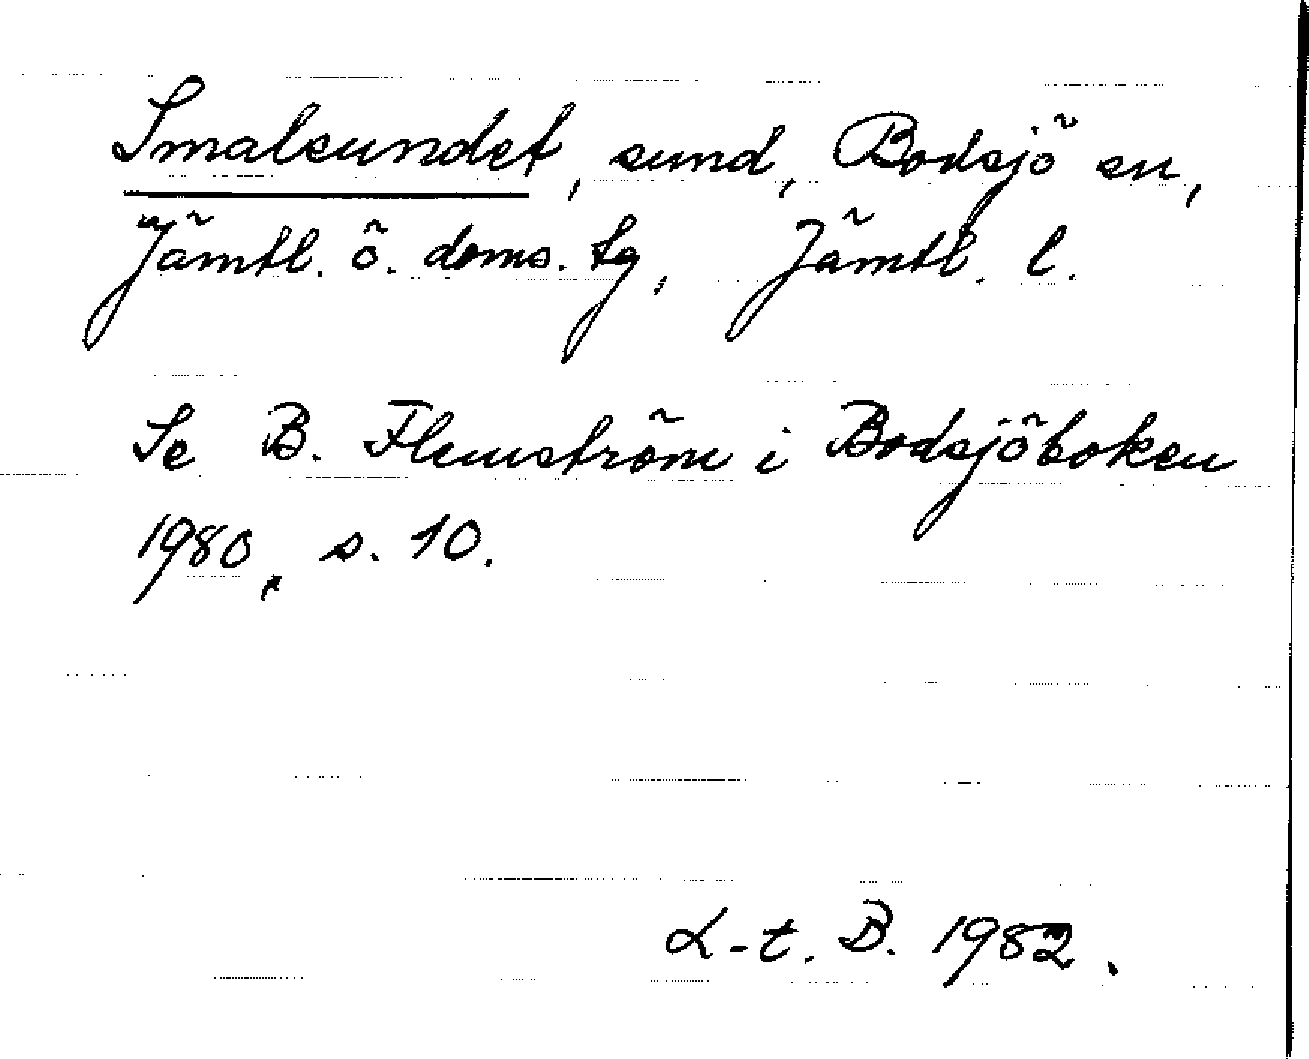 Smalsundet, sund, Bodsjö sn,
Jämtl. ö. doms. tg, Jämtl. l.
Se B. Flemström i Bodsjöboken
1980, s. 10.
L-t. B. 1982.